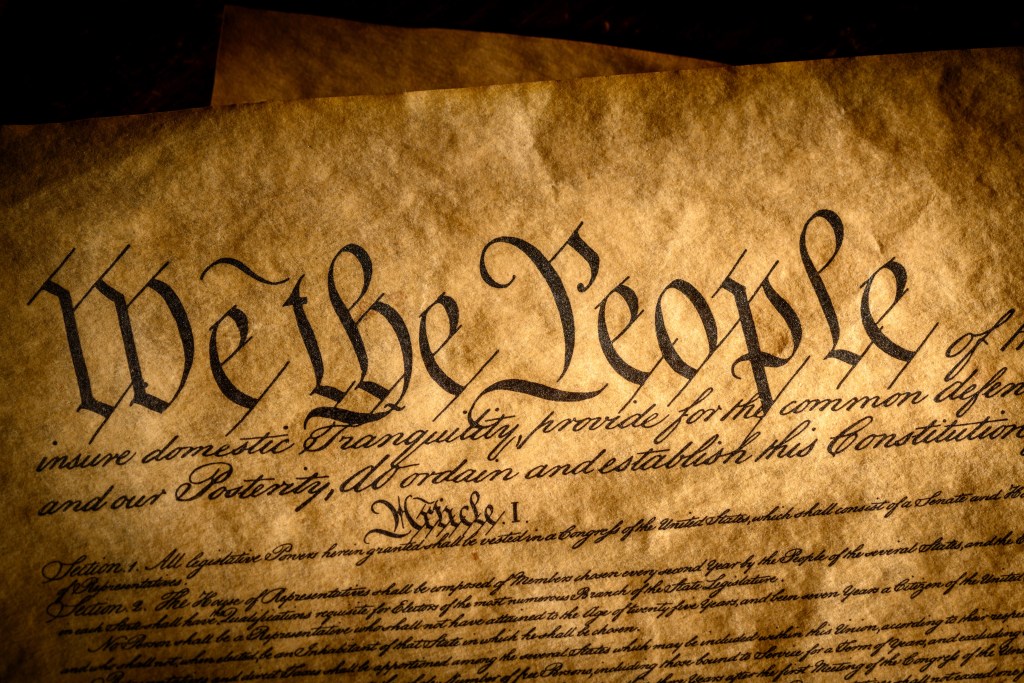 We the People of
insure domestic Tranquility, provide for the common defen
and our Posterity, do ordain and establish this Constitution
Article. I.
Section. 1. All legislative Powers herein granted shall be vested in a Congress of the United States, which shall consist of a Senate and
of Representatives.
Section. 2. The House of Representatives shall be composed of Members chosen every second Year by the People of the several States, and the
in each State shall have the Qualifications requisite for Electors of the most numerous Branch of the State Legislature.
No Person shall be a Representative who shall not have attained to the Age of twenty five Years, and been seven Years a Citizen of the United
and who shall not, when elected, be an Inhabitant of that State in which he shall be chosen.
Representatives and direct Taxes shall be apportioned among the several States which may be included within this Union, according to their
Number of free Persons, including those bound to Service for a Term of Years, and excluding
Years after the first Meeting of the Congress of the
shall not exceed one